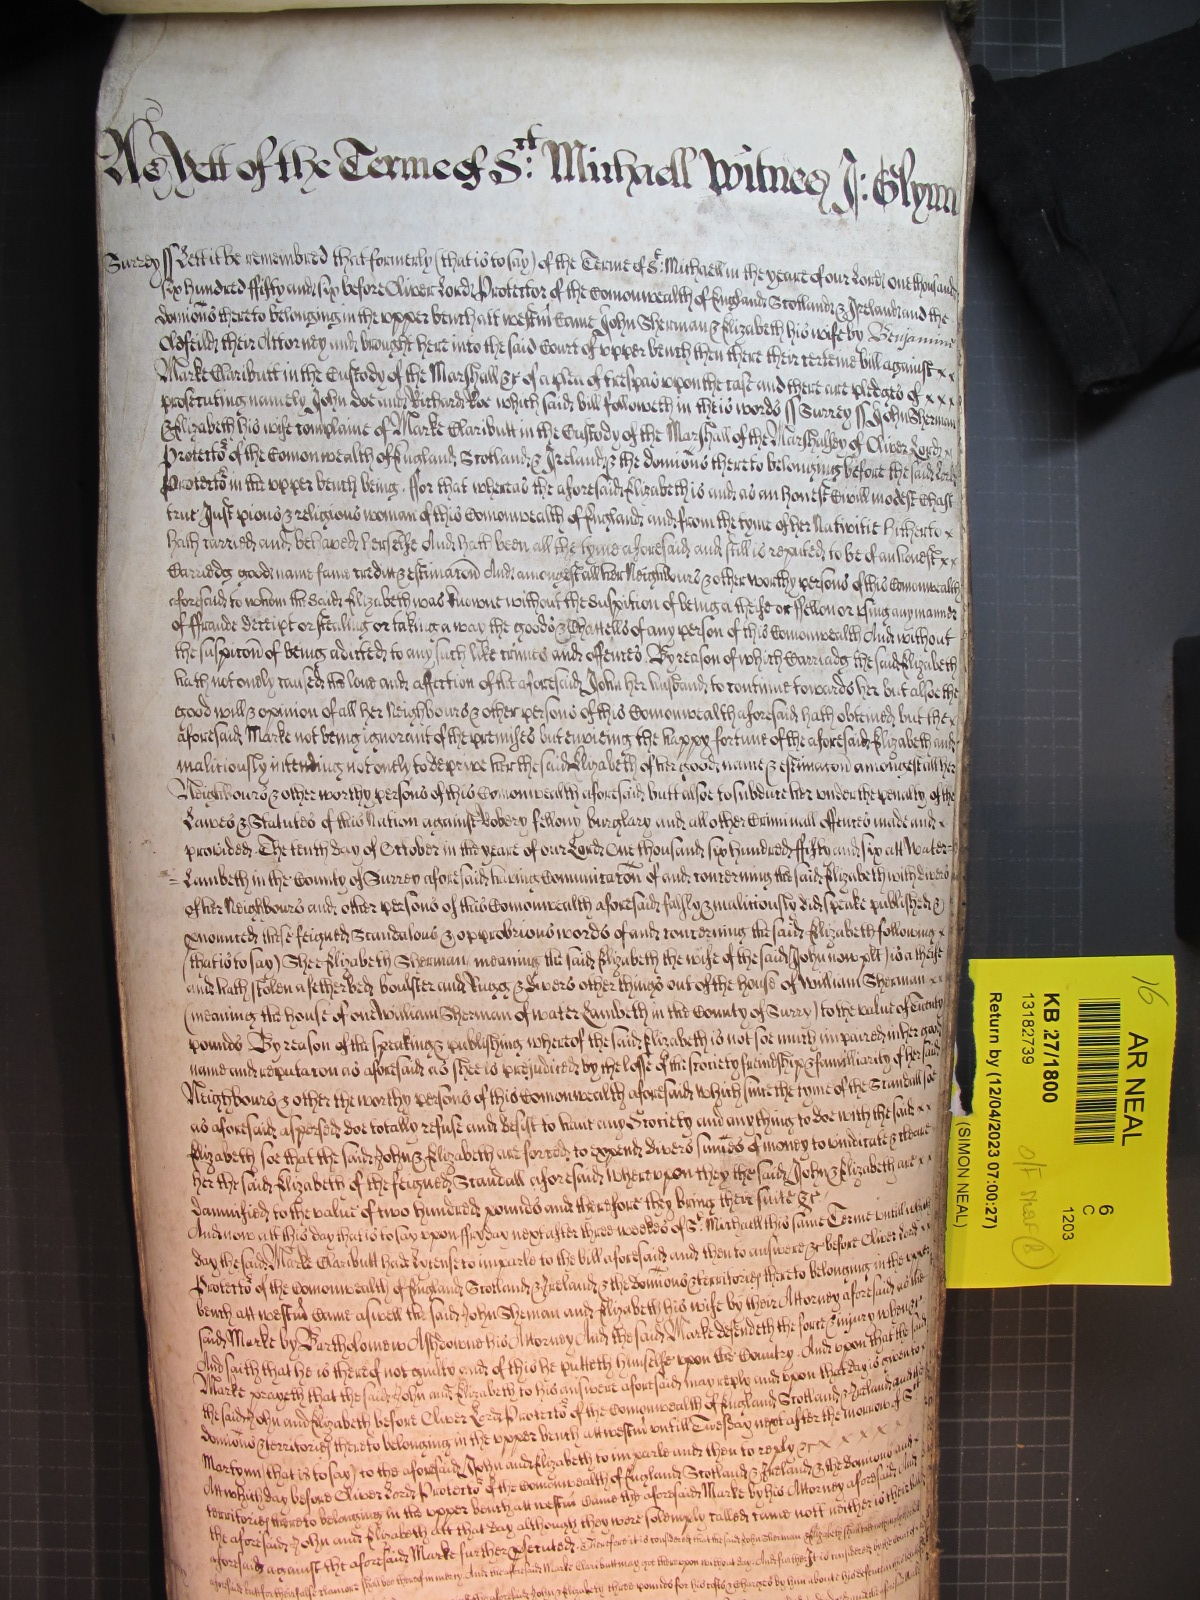 As Yett of the Terme of St: Michaell Witnes J: Glynn
Surrey ss Lett it be remembred that formerly (that is to say) of the Terme of St: Michaell in the yeare of our Lord one thousand
six hundred fifty and six before Oliver Lord Protector of the Comonwealth of England Scotland & Ireland and the
dominions thereto belonging in the upper bench att westm Came John Sherman & Elizabeth his wife by Benjamine
Oldfeild their Attorney and brought here into the said Court of upper bench then there their certeine bill against x x
Marke Claributt in the Custody of the Marshall &c of a plea of trespas upon the case and there are pledges of x x x
prosecuting namely John doe and Richard Roe which said bill followeth in theis words ss Surrey ss John Sherman
& Elizabeth his wife complaine of Marke Claributt in the Custody of the Marshall of the Marshalsey of Oliver Lord x
Protector of the Comonwealth of England Scotland & Ireland & the dominions thereto belonging before the said Lord
Protector in the upper bench being. ffor that whereas the aforesaid Elizabeth is and as an honest Civill modest Chast
true Just pious & religious woman of this Comonwealth of England and from the tyme of her Nativitie hitherto x
hath carried and behaved herselfe And hath been all the tyme aforesaid and still is reputed to be of an honest x x
Carriedg good name fame credit & estimacon And amongest all her Neighbours & other worthy persons of this Comonwealth
aforesaid to whom the said Elizabeth was knowne without the suspition of being a theife or ffellon or using any manner
of ffraude deceipt or stealing or taking away the goods & Chattells of any person of this Comonwealth And without
the suspicon of being adicted to any such like crimes and offences. By reason of which Carriadg the said Elizabeth
hath not onely caused the love and affection of the aforesaid John her husband to continue towards her but alsoe the
good will & opinion of all her Neighbours & other persons of this Comonwealth aforesaid hath obteined but the x
aforesaid Marke not being ignorant of the premises but envieing the happy fortune of the aforesaid Elizabeth and
malitiously intending not onely to deprive her the said Elizabeth of her good name & estimacon amongest all her
Neighbours & other worthy persons of this Comonwealth aforesaid butt alsoe to subdue her under the penalty of the
Lawes & Statutes of this Nation against Robery fellony burglary and all other Criminall offences made and x
provided The tenth day of October in the yeare of our Lord One thousand six hundred fifty and six att Water=
=Lambeth in the County of Surrey aforesaid having Comunicacon of and concerning the said Elizabeth with divers
of her Neighbours and other persons of this Comonwealth aforesaid falsly & malitiously did speake published &
pnounced these feigned Scandalous & opprobrious words of and concerning the said Elizabeth following x
(that is to say) Shee Elizabeth Sherman (meaning the said Elizabeth the wife of the said John now plt) is a theife
and hath stolen a fetherbed boulster and Rugg & divers other things out of the house of William Sherman x x
(meaning the house of one William Sherman of water Lambeth in the County of Surry) to the value of Twenty
pounds By reason of the speaking & publishing whereof the said Elizabeth is not soe much impaired in her good
name and reputacon as aforesaid as shee is prejudiced by the losse of the society friendship & familliarity of her said
Neighbours & other the worthy persons of this Comonwealth aforesaid which since the tyme of the Scandall soe
as aforesaid aspersed doe totally refuse and desist to have any Society and any thing to doe with the said x x
Elizabeth soe that the said John & Elizabeth are forced to expend divers sumes of money to vindicate & cleare
her the said Elizabeth of the feigned Scandall aforesaid Whereupon they the said John & Elizabeth are x x
damnified to the value of two hundred pounds and therefore they bring their suite &c
And now att this day that is to say upon ffryday next after three weekes of St: Michaell this same Terme untill which
day the said Marke Claributt had License to imparle to the bill aforesaid and then to answere &c before Oliver Lord
Protector of the Comonwealth of England Scotland & Ireland & the dominions & territories thereto belonging in the upper
bench att westm Came aswell the said John Sherman and Elizabeth his wife by their Attorney aforesaid as the
said Marke by Bartholomew Ashdowne his Attorney And the said Marke defendeth the force & injury when &c
And saith that he is thereof not guilty and of this he putteth himselfe upon the Country. And upon that the said
Marke prayeth that the said John and Elizabeth to his answere aforesaid may reply and upon that day is given to
the said John and Elizabeth before Oliver Lord Protector of the Comonwealth of England Scotland & Ireland and the
dominions & territories thereto belonging in the upper bench att westm untill Tuesday next after the morrow of St
Martynn (that is to say) to the aforesaid John and Elizabeth to imparle and then to reply &c x x x x x
Att which day before Oliver Lord Protector of the Comonwealth of England Scotland & Ireland & the dominions and
territories thereto belonging in the upper bench att westm Came the aforesaid Marke by his Attorney aforesaid And
the aforesaid John and Elizabeth att that day although they were solemply called came nott neither is their bill
aforesaid against the aforesaid Marke further psecuted. Therefore it is considered that the said John Sherman & Elizabeth
aforesaid but for their false clamore shall bee thereof in mercy And the aforesaid Marke Claributt may goe thereupon without day. And further It is considered by the Court
John & Elizabeth three pounds for his costs & charges by him about his defence
16
AR NEAL
6
C
1203
KB 27/1800
13182739
Return by (12/04/2023 07:00:27)
(SIMON NEAL)